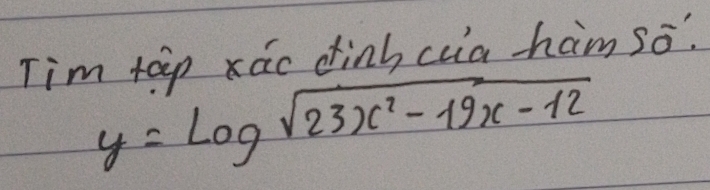 Tìm tập xác định của hàm số.
y = Log √(23x² - 19x - 12)